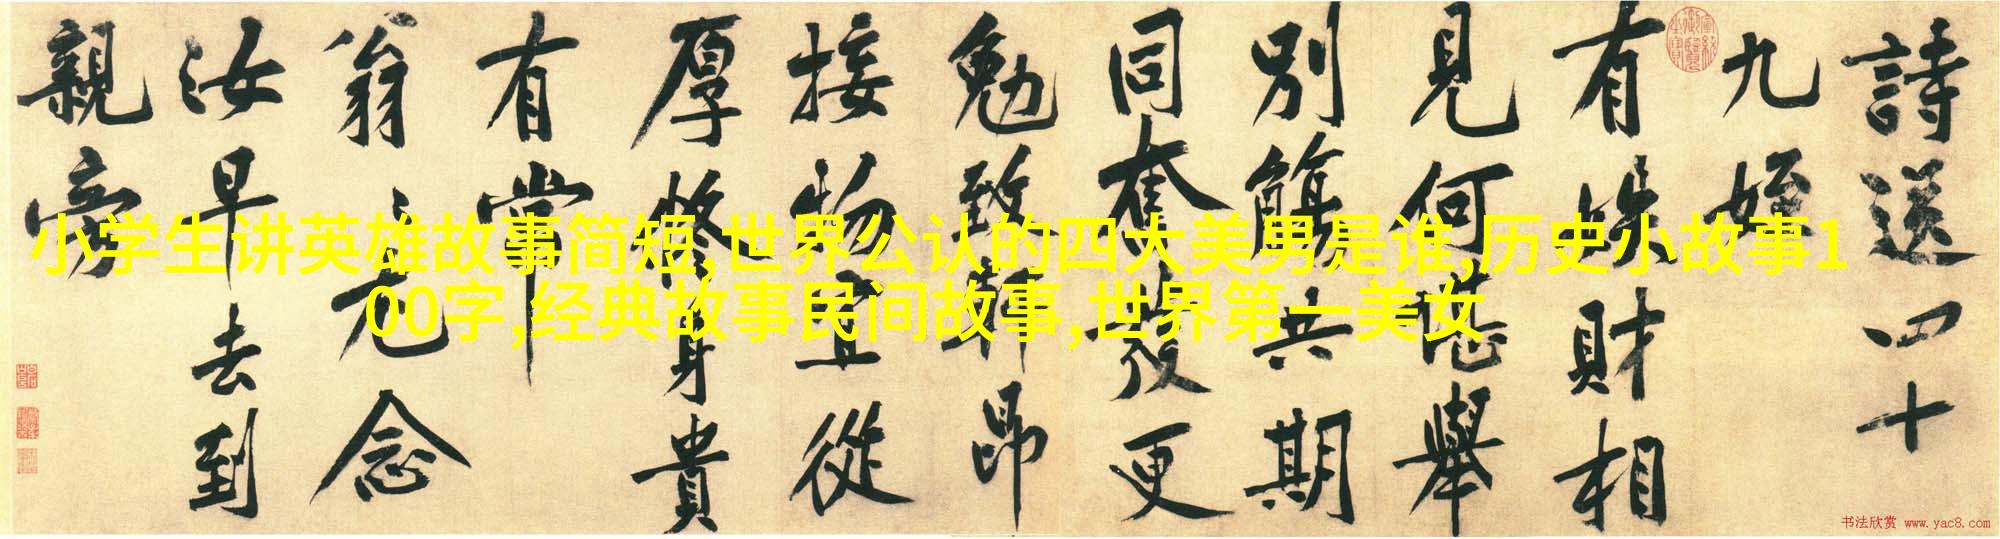 詩送四十
九姪
有咲財相
見何堪舉
別觴共期
同奮發更
勉致軒昂
接物宜從
厚修身貴
有常
翁〻尤念
汝早去到
親旁
小学生讲英雄故事简短,世界公认的四大美男是谁,历史小故事1
00字,经典故事民间故事,世界第一美女
书法欣赏 www.yac8.com